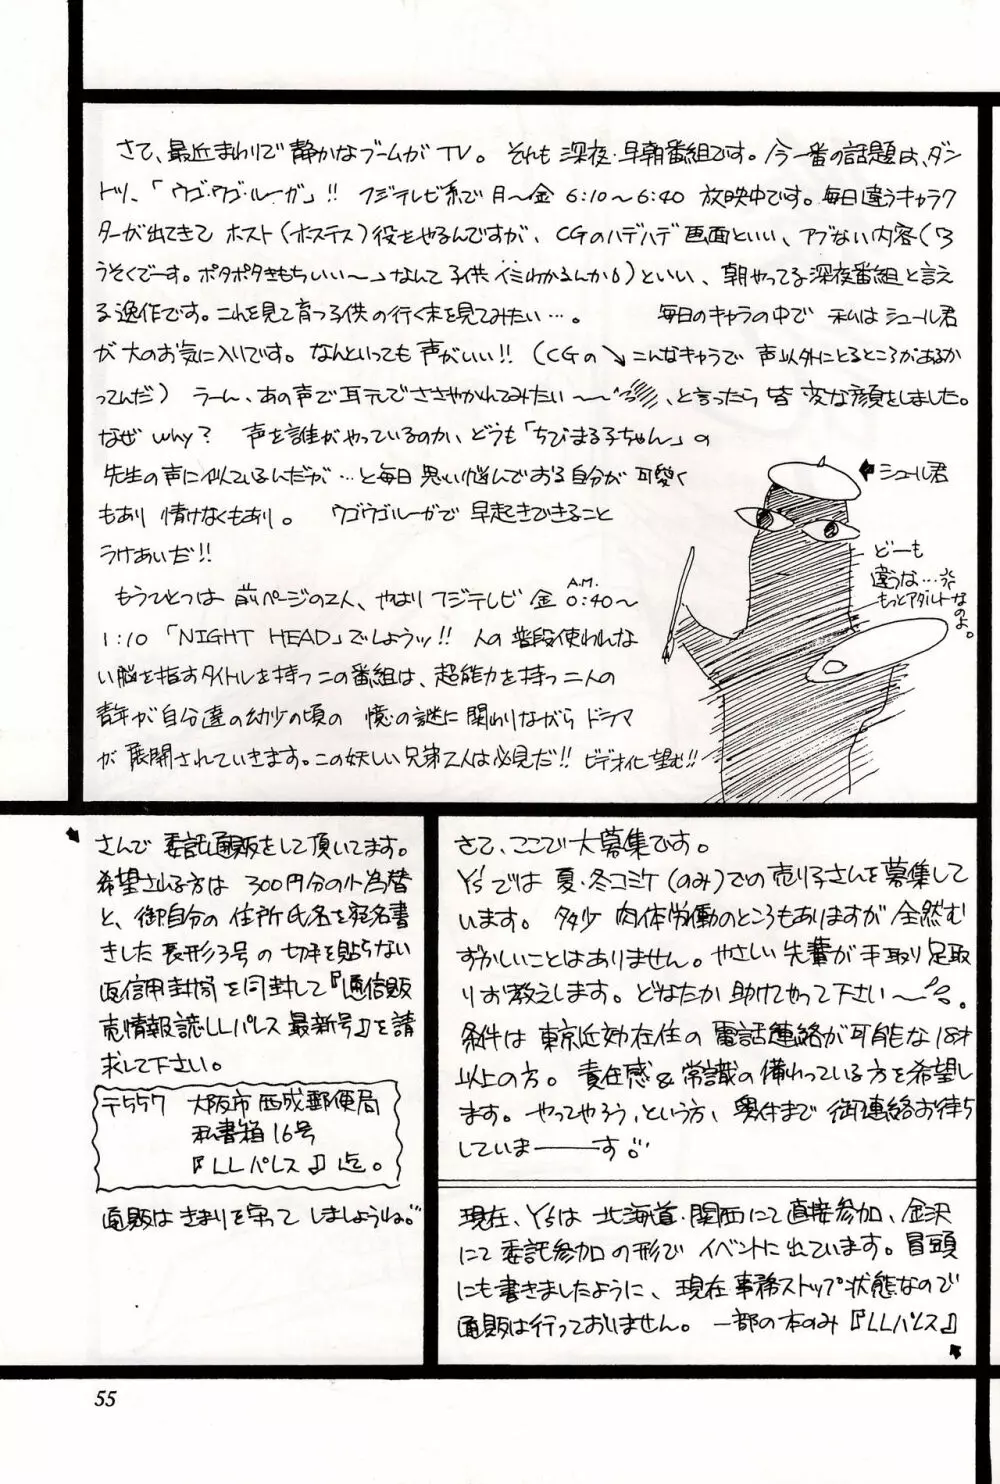 さて、最近まわりで静かなブームがTV。それも深夜・早朝番組です。今一番の話題は、ダン
トツ、「ウゴ・ウゴ・ルーガ」!! フジテレビ系で月〜金 6:10〜6:40 放映中です。毎日違うキャラク
ターが出てきてホスト(ホステス)役をやるんですが、CGのハデハデ画面といい、アブない内容(「ろ
うそくでーす。ポタポタきもちいい〜」なんて子供イミわかるんか!)といい、朝やってる深夜番組と言え
る逸作です。これを見て育つ子供の行く末を見てみたい…。 毎日のキャラの中で 私はシュール君
が大のお気に入りです。なんといっても声がいい!!(CGの↘こんなキャラで声以外にとるところがあるか
ってんだ) うーん、あの声で耳元でささやかれてみたい〜〜、と言ったら皆変な顔をしました。
なぜ why? 声を誰がやっているのか、どうも「ちびまる子ちゃん」の
先生の声に似ているんだが…と毎日思い悩んでおる自分が可愛く
もあり 情けなくもあり。 ウゴウゴルーガで早起きできること
うけあいだ!!
もうひとつは前ページの2人、やはりフジテレビ 金 A.M. 0:40〜
1:10「NIGHT HEAD」でしょうッ!! 人の普段使われな
い脳を指すタイトルを持つこの番組は、超能力を持つ二人の
青年が自分達の幼少の頃の 憶の謎に関わりながらドラマ
が展開されていきます。この妖しい兄弟2人は必見だ!! ビデオ化望む!!
←シュール君
どーも
違うな…
もっとアダルトなのよ。
さんで委託通販をして頂いてます。
希望される方は 300円分の小為替
と、御自分の住所氏名を宛名書
きした長形3号の切手を貼らない
返信用封筒を同封して『通信販
売情報誌LLパレス最新号』を請
求して下さい。
〒557 大阪市西成郵便局
私書箱16号
『LLパレス』迄。
通販はきまりを守ってしましょうね。
さて、ここで大募集です。
Y'sでは夏・冬コミケ(のみ)での売り子さんを募集して
います。 多少 肉体労働のところもありますが全然む
ずかしいことはありません。やさしい先輩が手取り足取
りお教えします。どなたか助けてやって下さい〜。
条件は東京近効在住の電話連絡が可能な18才
以上の方。責任感&常識の備わっている方を希望し
ます。やってやろう、という方、奥付まで御連絡お待ち
していまーーす
現在、Y'sは北海道・関西にて直接参加、金沢
にて委託参加の形でイベントに出ています。冒頭
にも書きましたように、現在事務ストップ状態なので
通販は行っておいません。一部の本のみ『LLパレス』
55